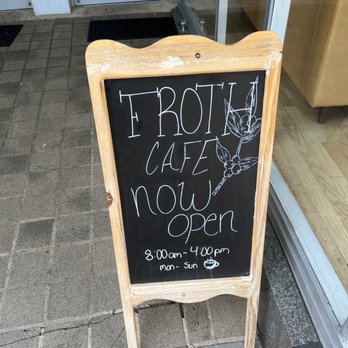 FROTH
CAFE
now
open
8:00am - 4:00pm
mon - Sun